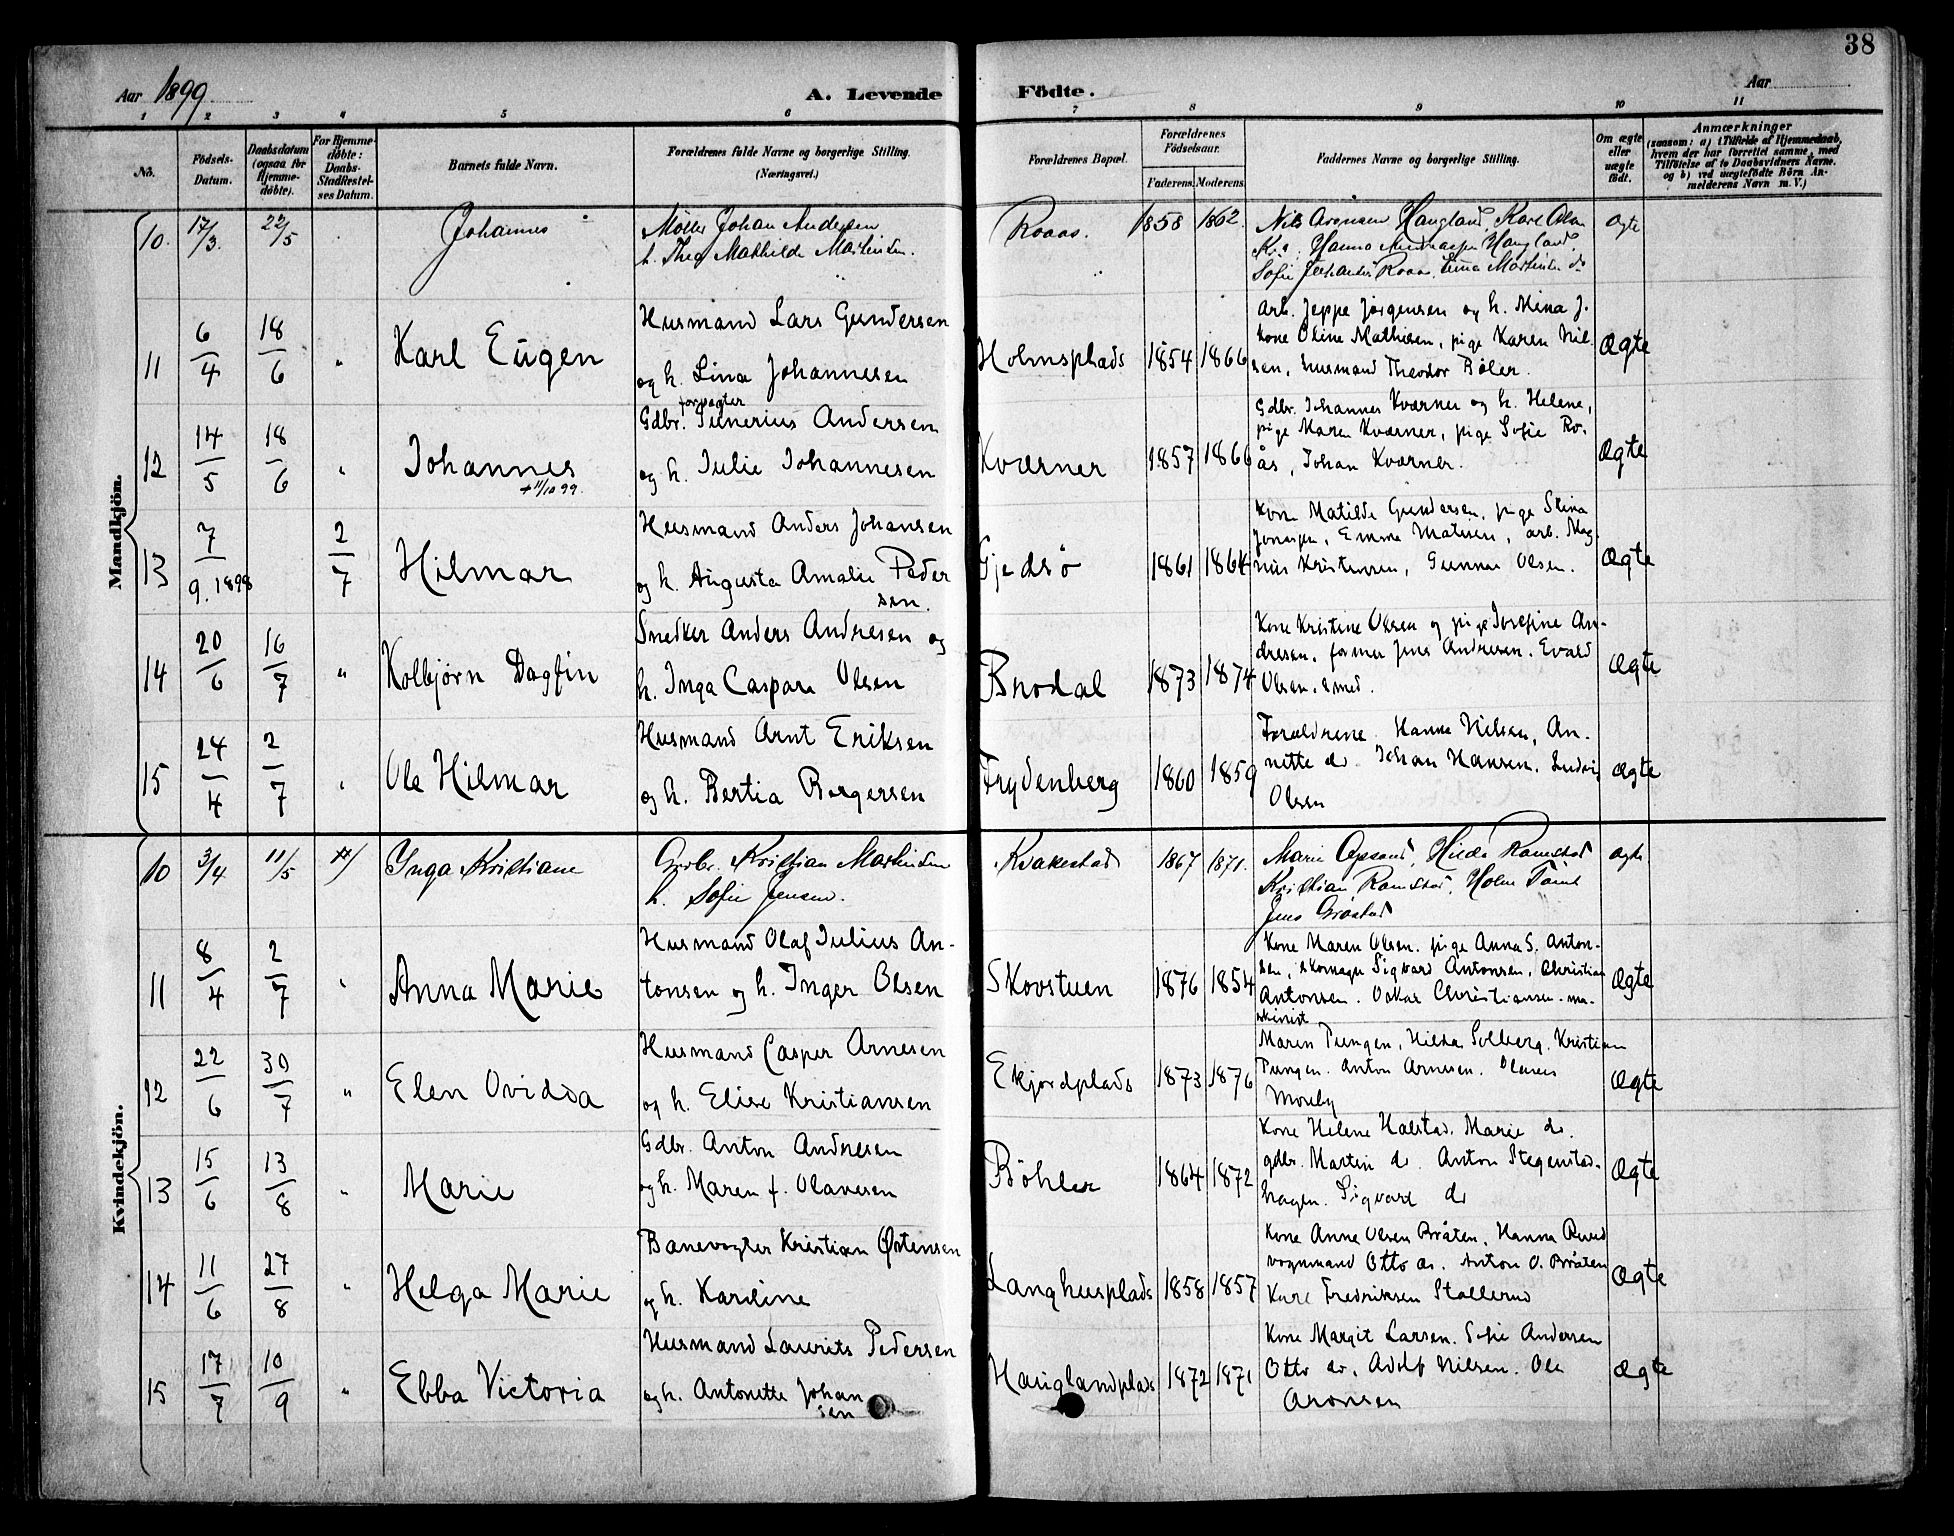 38
Aar 1899
A. Levende Födte.
Aar
1 2 3 4 5 6 7 8 9 10 11
No.
Födsels-
Datum.
Daabsdatum
(ogsaa for
Hjemme-
döbte).
For Hjemme-
döbte:
Daabs-
Stadfæstel-
ses Datum.
Barnets fulde Navn.
Forældrenes fulde Navne og borgerlige Stilling.
(Næringsvei.)
Forældrenes Bopæl.
Forældrenes
Födselsaar.
Faderens. Moderens.
Faddernes Navne og borgerlige Stilling.
Om ægte
eller
uægte
födt.
Anmærkninger
(saasom: a) i Tilfælde af Hjemmedaab,
hvem der har forrettet samme, med
Tilföielse af to Daabsvidners Navne.
og b) ved uægtefödte Börn An-
melderens Navn m. V.)
Mandkjön.
10. 17/3. 22/5 Johannes
Möller Johan Andersen
h. Thea Mathilde Martinsen.
Roaas. 1858 1862.
Nils Aronsen Haugland, Karl Olsn
Hanna Haugland,
Sofie Roaas, Martinsen do
ægte
11 6/4 18/6 " Karl Eugen
Husmand Lars Gundersen
og h. Lina Johannesen
Holmsplads 1854 1866
Arb. Jeppe Jörgensen og h. Mina J.
Kone Oline Mathisen, pige Karen Nil
sen, Husmand Theodor Böler.
Ægte
12 14/5 18/6 " Johannes
+ 11/10 99.
forpagter
Gdbr. Andersen
og h. Julie Johannesen
Kværner 1857 1866
Gdbr. Johannes Kværner og h. Helene,
pige Maren Kværner, pige Sofie Ro-
ås, Johan Kværner.
Ægte
13 7/9. 1898 2/7 Hilmar
Husmand Anders Johansen
og h. Augusta Amalie Peder
sen.
Gjedsö 1861 1864
Kone Matilde Gundersen, pige Stina
Jonasen, Emma Matisen, arb. Mag-
nus Kristensen, Gunnar Olsen.
Ægte
14 20/6 16/7 " Kolbjörn Dagfin
Snedker Anders Andresen og
h. Inga Caspara Olsen
Brodal 1873 1874
Kone Kristine Olsen og pige Josefine An-
dresen, former Jens Andresen. Evald
Olsen. smed.
Ægte
15 24/4 2/7 " Ole Hilmar
Husmand Arnt Eriksen
og h. Bertia Borgersen
Frydenberg 1860 1859
Forældrene. Hanna Nilsen, An-
nette do. Johan Hansen. Ludvig
Olsen
Ægte
Kvindekjön.
10 3/4 11/5 Inga Kristiane
Grbr. Kristian Martinsen
h. Sofie Jensen.
Kvakestad 1867 1871.
Marie Opsand, Hilda Ramstad
Kristian Ramstad, Holm Tomt
Jens Gröstad
ægte
11 8/4 2/7 " Anna Marie
Husmand Olaf Julius An-
tonsen og h. Inger Olsen
Skovstuen 1876 1854
Kone Maren Olsen. pige Anna S. Anton-
sen, skomager Sigvard Antonsen, Christian
Antonsen. Oskar Christiansen. ma-
skinist
Ægte
12 22/6 30/7 " Elen Ovidda
Husmand Casper Arnesen
og h. Elise Kristiansen
Ekjordplads 1873 1876
Maren Pungen, Hilda Solberg. Kristian
Pungen. Anton Arnesen. Olaves
Moseby
Ægte
13 15/6 13/8 " Marie
Gdbr. Anton Andresen
og h. Maren f. Olavesen
Böhler 1864 1872
Kone Helene Halstad. Marie do.
gdbr. Martin do. Anton Stegenstad-
hagen. Sigvard do
Ægte
14 11/6 27/8 " Helga Marie
Banevogter Kristian Østensen
og h. Karoline
Langhusplads 1858 1857
Kone Anne Olsen Bråten, Hanna
vognmand Otto do. Anton O. Bråten
Kare Fredriksen Stallerud
Ægte
15 17/7 10/9 " Ebba Victoria
Husmand Laurits Pedersen
og h. Antonette Johan
sen
Hauglandplads 1872 1871
Kone Margit Larsen. Sofie Andersen
Otto do, Adolf Nilsen. Ole
Aronsen
Ægte